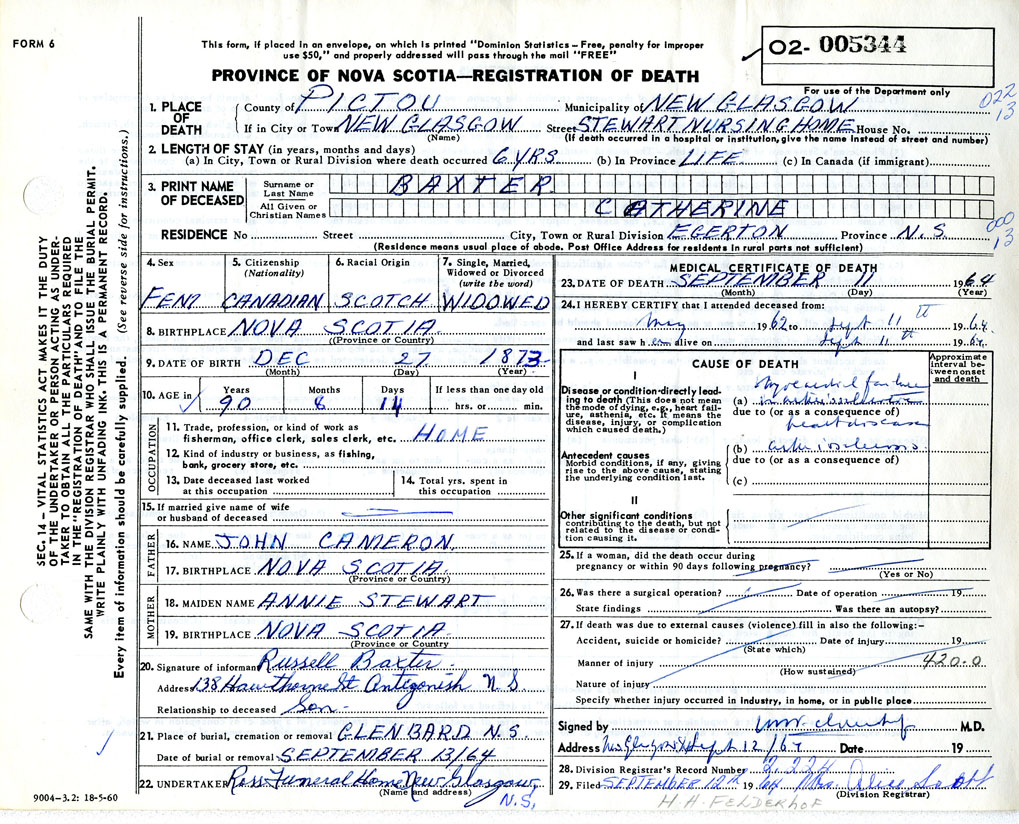 FORM 6
This form, if placed in an envelope, on which is printed "Dominion Statistics – Free, penalty for improper
use $50," and properly addressed will pass through the mail "FREE"
02- 005344
For use of the Department only
PROVINCE OF NOVA SCOTIA—REGISTRATION OF DEATH
022
13
1. PLACE OF DEATH
County of PICTOU Municipality of NEW GLASGOW
If in City or Town NEW GLASGOW Street STEWART NURSING HOME House No.
(Name) (If death occurred in a hospital or institution, give the name instead of street and number)
2. LENGTH OF STAY (in years, months and days)
(a) In City, Town or Rural Division where death occurred 6 YRS. (b) In Province LIFE (c) In Canada (if immigrant)
3. PRINT NAME OF DECEASED
Surname or Last Name BAXTER
All Given or Christian Names CATHERINE
000
13
RESIDENCE No Street City, Town or Rural Division EGERTON Province N.S.
(Residence means usual place of abode. Post Office Address for residents in rural parts not sufficient)
4. Sex FEM
5. Citizenship (Nationality) CANADIAN
6. Racial Origin SCOTCH
7. Single, Married, Widowed or Divorced (write the word) WIDOWED
8. BIRTHPLACE NOVA SCOTIA
((Province or Country)
9. DATE OF BIRTH DEC 27 1873
(Month) (Day) (Year)
10. AGE in Years 90 Months 8 Days 14 If less than one day old hrs. or min.
OCCUPATION
11. Trade, profession, or kind of work as
fisherman, office clerk, sales clerk, etc. HOME
12. Kind of industry or business, as fishing,
bank, grocery store, etc.
13. Date deceased last worked
at this occupation
14. Total yrs. spent in
this occupation
15. If married give name of wife
or husband of deceased
FATHER
16. NAME JOHN CAMERON.
17. BIRTHPLACE NOVA SCOTIA
(Province or Country)
MOTHER
18. MAIDEN NAME ANNIE STEWART
19. BIRTHPLACE NOVA SCOTIA
(Province or Country
20. Signature of informant Russell Baxter
Address 138 Hawthorne St Antigonish N.S.
Relationship to deceased Son
21. Place of burial, cremation or removal GLENBARD N.S.
Date of burial or removal SEPTEMBER 13/64
22. UNDERTAKER Ross Funeral Home New Glasgow,
(Name and address) N.S.
9004-3.2: 18-5-60
MEDICAL CERTIFICATE OF DEATH
23. DATE OF DEATH SEPTEMBER 11 1964
(Month) (Day) (Year)
24. I HEREBY CERTIFY that I attended deceased from:
May 1962 to Sept 11th 1964
and last saw her alive on Sept 11th 1964
CAUSE OF DEATH
Approximate interval between onset and death
I
Disease or condition directly leading to death (This does not mean
the mode of dying, e.g., heart failure, asthenia, etc. It means the
disease, injury, or complication
which caused death.)
Myocardial failure
(a)
due to (or as a consequence of)
heart disease
Antecedent causes
Morbid conditions, if any, giving
rise to the above cause, stating
the underlying condition last.
(b)
due to (or as a consequence of)
(c)
II
Other significant conditions
contributing to the death, but not
related to the disease or condition causing it.
25. If a woman, did the death occur during
pregnancy or within 90 days following pregnancy?
(Yes or No)
26. Was there a surgical operation? Date of operation 19
State findings Was there an autopsy?
27. If death was due to external causes (violence) fill in also the following:-
Accident, suicide or homicide? Date of injury 19
(State which)
Manner of injury 420.0
(How sustained)
Nature of injury
Specify whether injury occurred in industry, in home, or in public place
Signed by M.D.
Address New Glasgow Sept 12/64 Date 19
28. Division Registrar's Record Number
29. Filed SEPTEMBER 12th 1964 Mrs. Alice Scott
(Division Registrar)
H.A. FELDERHOF
SEC. 14 – VITAL STATISTICS ACT MAKES IT THE DUTY
OF THE UNDERTAKER OR PERSON ACTING AS UNDER-
TAKER TO OBTAIN ALL THE PARTICULARS REQUIRED
IN THE "REGISTRATION OF DEATH" AND TO FILE THE
SAME WITH THE DIVISION REGISTRAR WHO SHALL ISSUE THE BURIAL PERMIT.
WRITE PLAINLY WITH UNFADING INK. THIS IS A PERMANENT RECORD.
Every item of information should be carefully supplied. (See reverse side for instructions.)